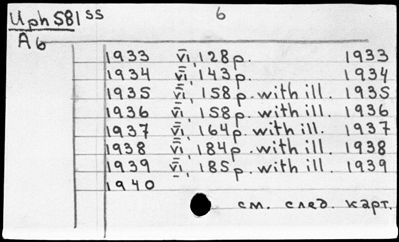 Uph581ss 6
A6
1933 vi, 128p. 1933
1934 vi, 143p. 1934
1935 vi, 158p. with ill. 1935
1936 vi, 158p. with ill. 1936
1937 vi, 164p. with ill. 1937
1938 vi, 184p. with ill. 1938
1939 vi, 185p. with ill. 1939
1940
см. след. карт.